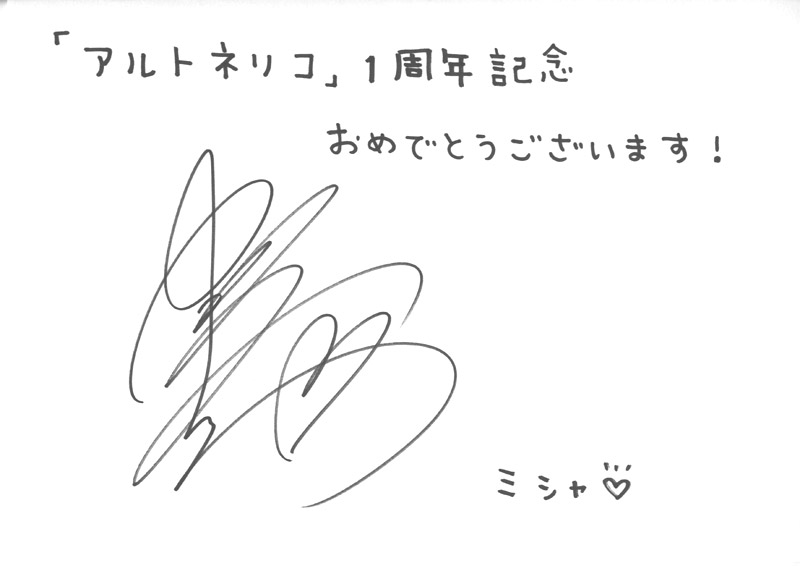 「アルトネリコ」1周年記念
おめでとうございます!
ミシャ♡